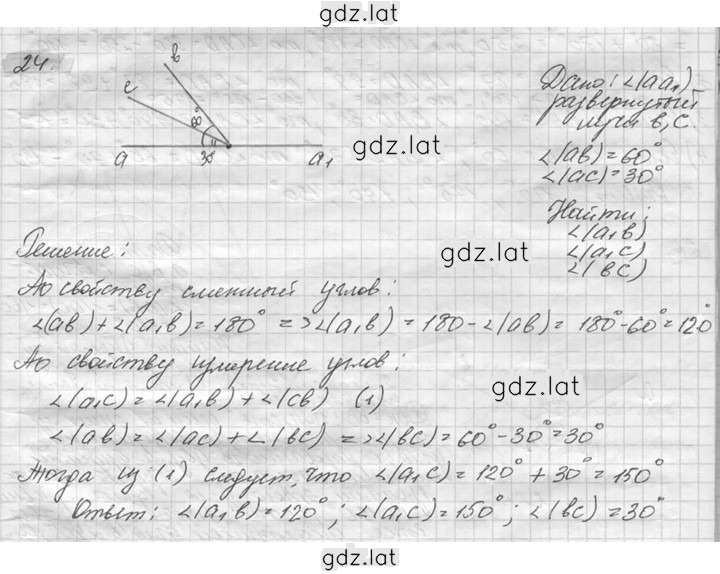 gdz.lat
24.
b
c
60°
a
30°
a₁
gdz.lat
Дано: ∠(aa₁)
развернутый
лучи b, c.
∠(ab)=60°
∠(ac)=30°
Найти:
∠(a₁b)
∠(a₁c)
∠(bc)
gdz.lat
Решение:
По свойству смежных углов:
∠(ab)+∠(a₁b)=180° => ∠(a₁b) = 180-∠(ab)= 180°-60°=120°
По свойству измерение углов:
gdz.lat
∠(a₁c)=∠(a₁b)+∠(cb) (1)
∠(ab)=∠(ac)+∠(bc) =>∠(bc)=60°-30°=30°
Тогда из (1) следует, что ∠(a₁c)=120°+30°=150°
Ответ: ∠(a₁b)=120°; ∠(a₁c)=150°; ∠(bc)=30°
gdz.lat